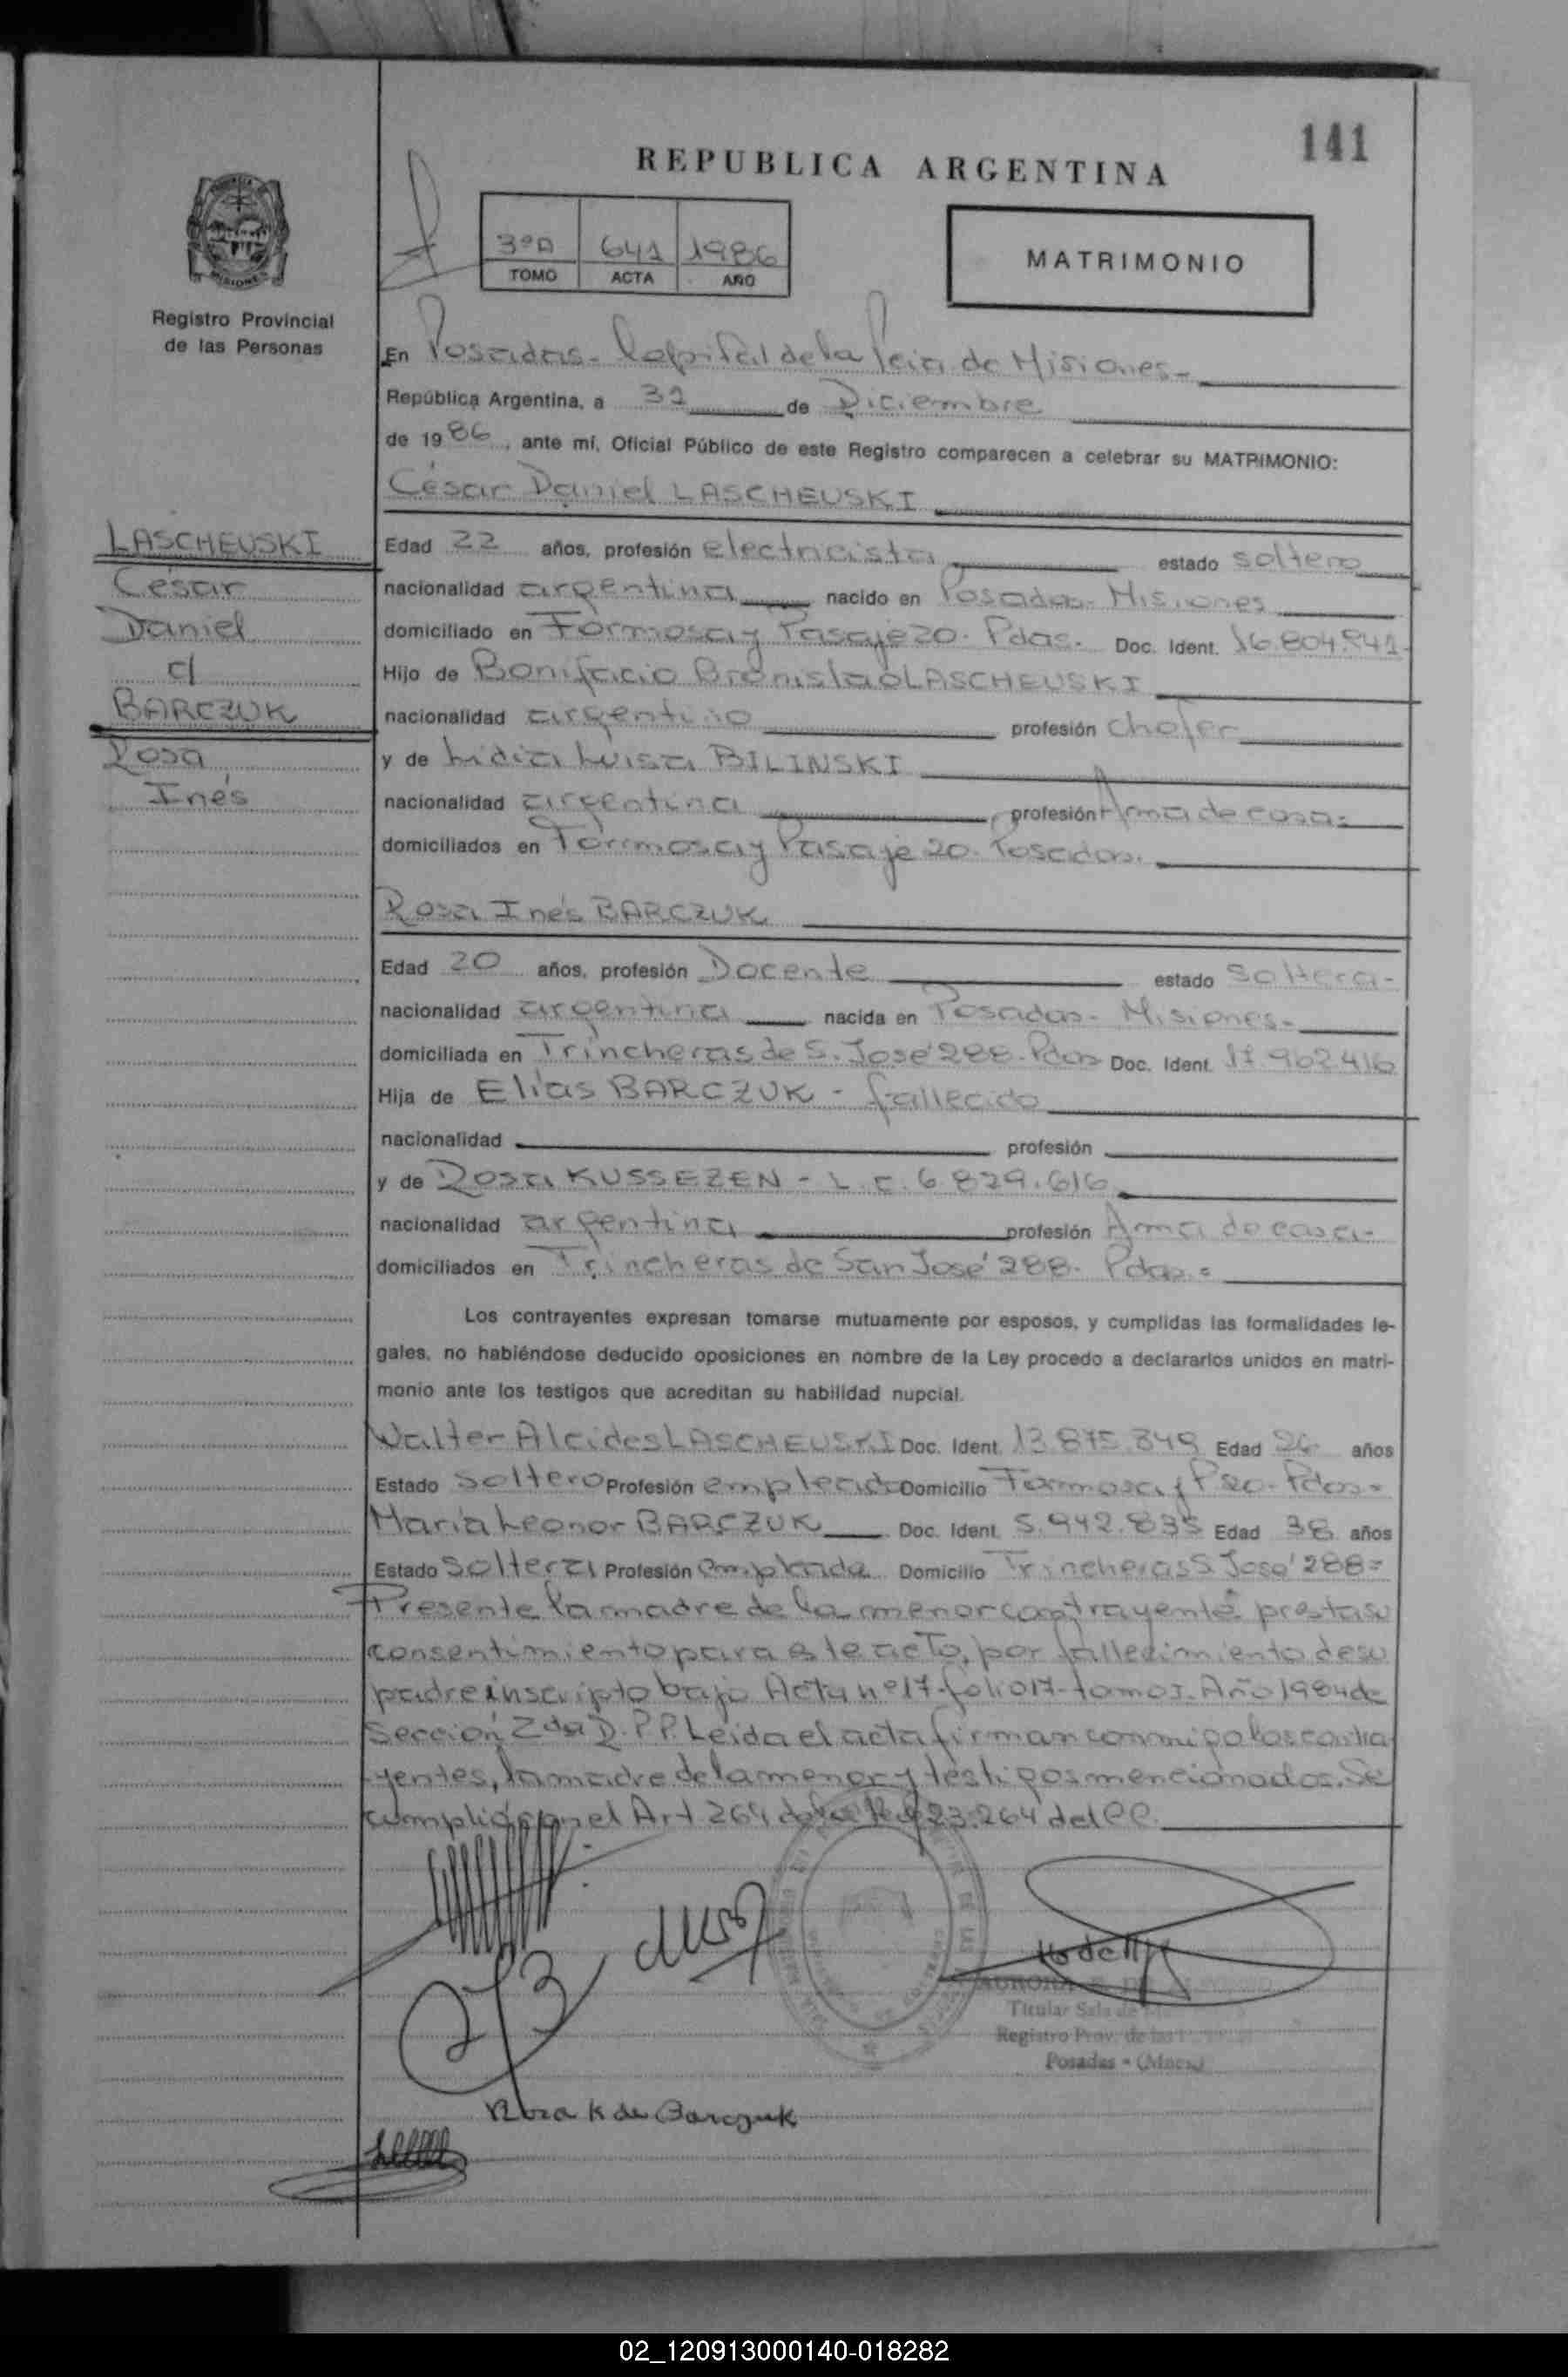 141
REPUBLICA ARGENTINA
3ºA 641 1986
TOMO ACTA AÑO
MATRIMONIO
MISIONES
Registro Provincial
de las Personas
En Posadas - Capital de la Pcia de Misiones -
República Argentina, a 31 de Diciembre
de 1986, ante mí, Oficial Público de este Registro comparecen a celebrar su MATRIMONIO:
César Daniel LASCHEUSKI
LASCHEUSKI
César
Daniel
c/
BARCZUK
Rosa
Inés
Edad 22 años, profesión electricista estado soltero
nacionalidad argentina nacido en Posadas - Misiones
domiciliado en Formosa y Pasaje 20. Pdas. Doc. Ident. 16.804.841-
Hijo de Bonifacio Bronislao LASCHEUSKI
nacionalidad argentino profesión chofer
y de Lidia Luisa BILINSKI
nacionalidad argentina profesión Ama de casa-
domiciliados en Formosa y Pasaje 20. Posadas.
Rosa Inés BARCZUK
Edad 20 años, profesión Docente estado soltera-
nacionalidad argentina nacida en Posadas - Misiones-
domiciliada en Trincheras de S. José 288. Pdas Doc. Ident. 17.962.416
Hija de Elías BARCZUK - fallecido
nacionalidad profesión
y de Rosa KUSSEZEN - L.C. 6.829.616
nacionalidad argentina profesión Ama de casa-
domiciliados en Trincheras de San José 288. Pdas.=
Los contrayentes expresan tomarse mutuamente por esposos, y cumplidas las formalidades le-
gales, no habiéndose deducido oposiciones en nombre de la Ley procedo a declararlos unidos en matri-
monio ante los testigos que acreditan su habilidad nupcial.
Walter Alcides LASCHEUSKI Doc. Ident. 13.875.849 Edad 26 años
Estado soltero Profesión empleado Domicilio Formosa y P.20 - Pdas=
María Leonor BARCZUK Doc. Ident. 5.942.835 Edad 38 años
Estado Soltera Profesión empleada Domicilio Trincheras S. José 288=
Presente la madre de la menor contrayente presta su
consentimiento para este acto, por fallecimiento de su
padre inscripto bajo Acta nº 17- folio 17- tomo I. Año 1984 de
Sección 2da R.P.P. Leída el acta firman conmigo los contra
yentes, la madre de la menor y testigos mencionados. Se
cumplió con el Art 264 de la Ley 23.264 del CC.
Titular Sala de
Registro Prov. de las
Posadas - (Mnes)
Rosa K de Barczuk
02_120913000140-018282